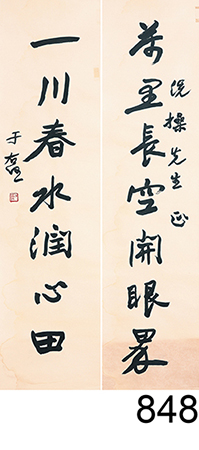 萬里長空開眼界
操先生正
一川春水潤心田
于右任
848